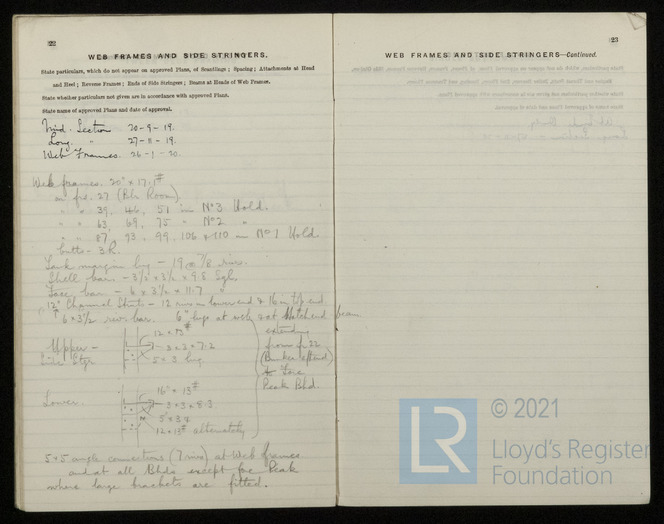 22
WEB FRAMES AND SIDE STRINGERS.
State particulars, which do not appear on approved Plans, of Scantlings; Spacing; Attachments at Head
and Heel; Reverse Frames; Ends of Side Stringers; Beams at Heads of Web Frames.
State whether particulars not given are in accordance with approved Plans.
State name of approved Plans and date of approval.
Mid. Section 20-9-19.
Long. " 27-11-19.
Web Frames. 26-1-20.
Web frames. 20" x 17.1#
on frs. 27 (Blr Room).
" " 39, 46, 51 in No 3 Hold.
" " 63, 69, 75 " No 2 "
" " 87, 93, 99, 106 & 110 in No 1 Hold.
butts - 3.R.
Tank margin lug - 19, 7/8 rivs.
Shell bar - 3½ x 3½ x 9.8
Face bar - 6 x 3½ x 11.7 "
12" Channel Struts - 12 rivs in lower end & 16 in top end.
6 x 3½ rev. bar. 6" lugs at web & at Hatch end beam.
Upper -
Side Stgr.
12 x 13#
8 x 3 x 7.2
5 x 3 lug.
extending
from fr 22
(Bunker aftend)
to Fore
Peak Bhd.
Lower.
16" x 13#
8 x 3 x 8.3
5 x 3.4
12 x 13# alternately
5 x 5 angle connections (7 rivs) at Web frames
and at all Bhds except fore Peak
where large brackets are fitted.
23
WEB FRAMES AND SIDE STRINGERS—Continued.
LR
© 2021
Lloyd's Register
Foundation